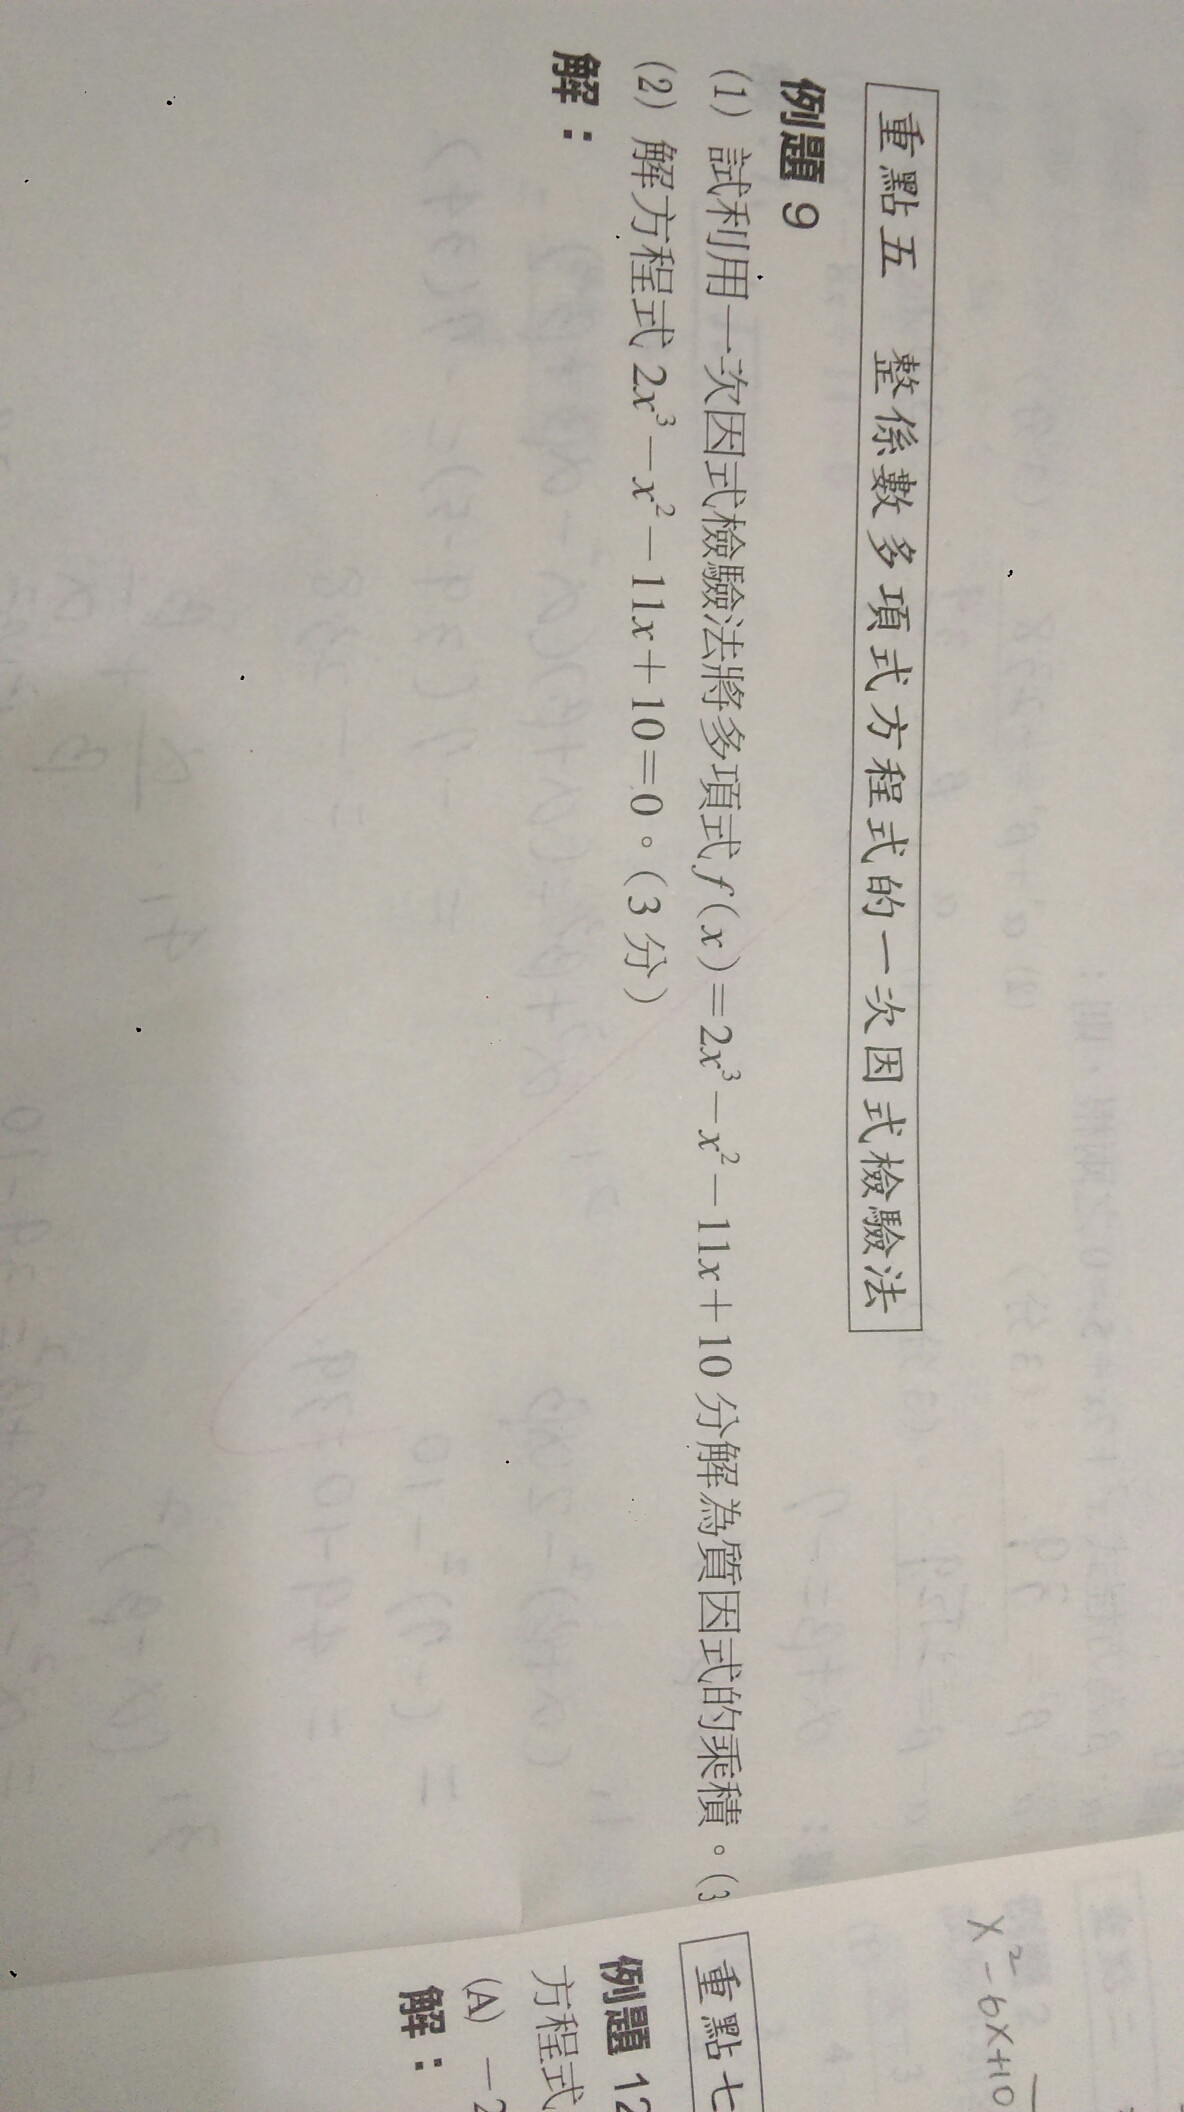 重點五 整係數多項式方程式的一次因式檢驗法
例題 9
(1) 試利用一次因式檢驗法將多項式 f(x)=2x³-x²-11x+10 分解為質因式的乘積。(3
(2) 解方程式 2x³-x²-11x+10=0。(3 分)
解：
x²-6x+10
重點七
例題 12
方程式
(A) -2
解：